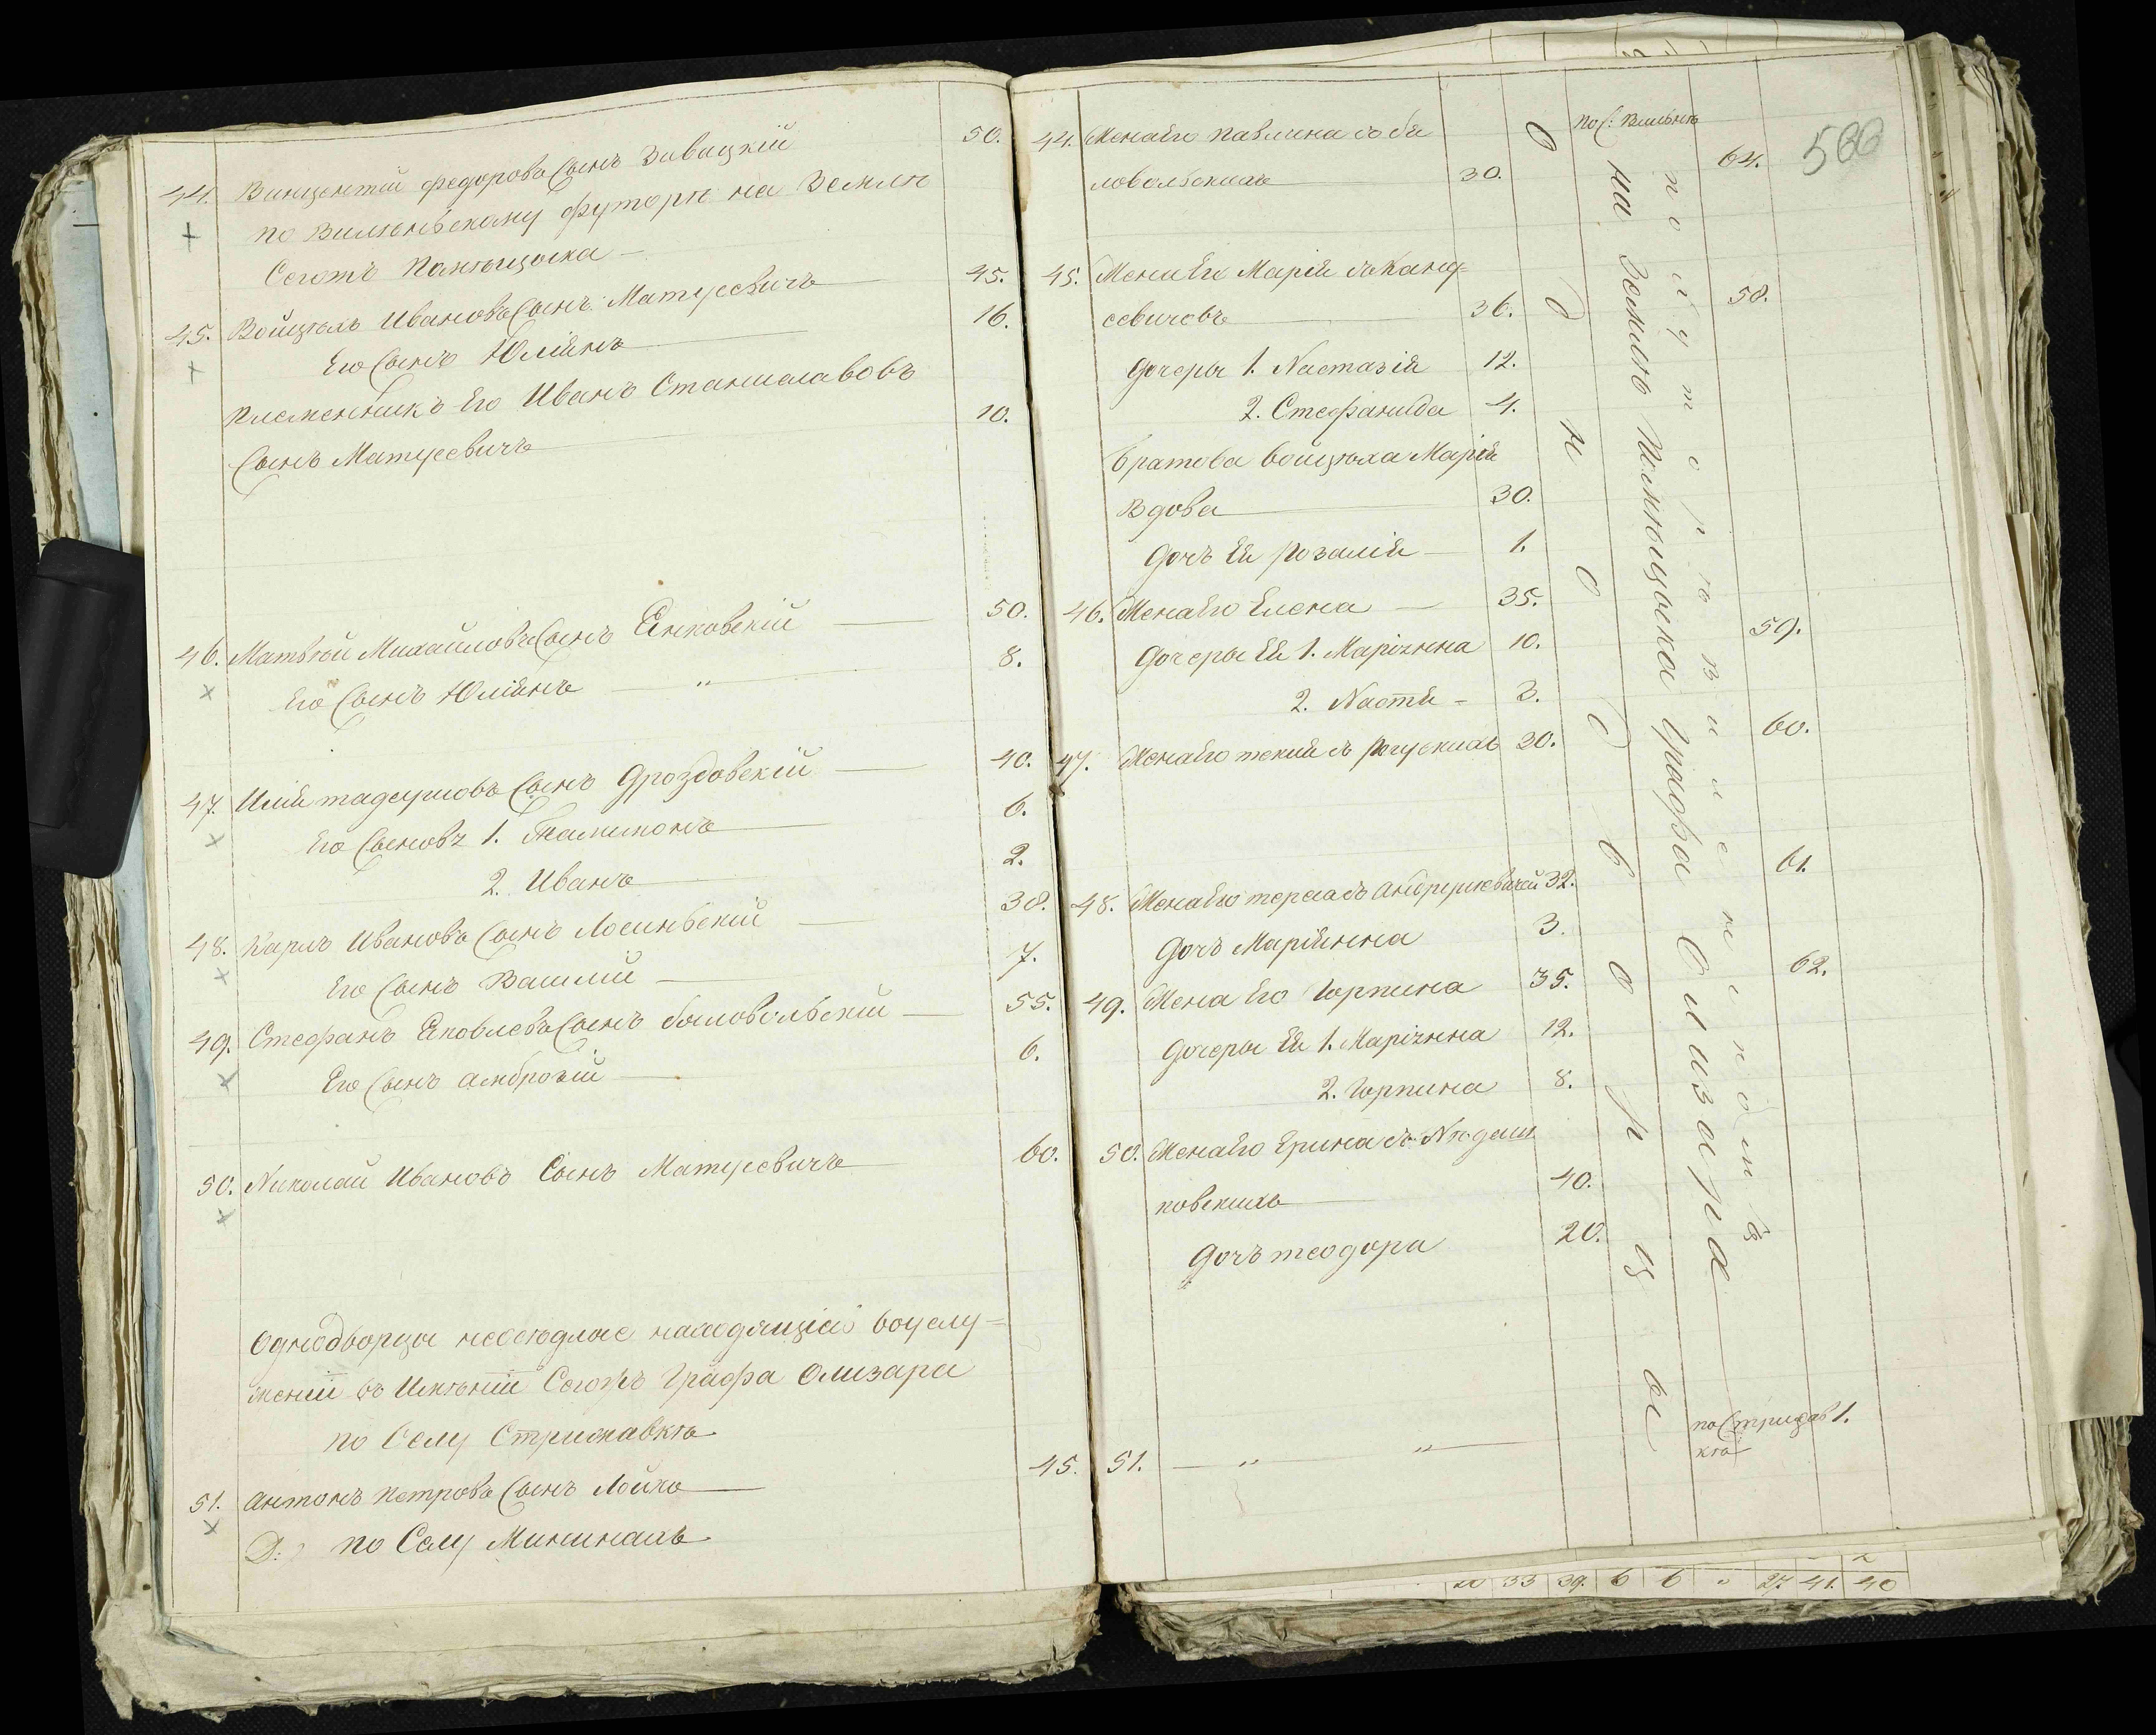 44. Винцентій федоровъ Сынъ Завацкій 50.
по Вилснѣскому футорѣ на Землѣ
Сегожъ Помѣщыка
45. Войцѣхъ Ивановъ Сынъ Матусевичъ 45.
Его Сынъ Юліянъ 16.
Племенникъ Его Иванъ Станиславовъ
Сынъ Матусевичъ 10.
46. Матвѣй Михайловъ Сынъ Янковскій 50.
Его Сынъ Юліянъ 8.
47. Илія тадеушовъ Сынъ Дроздовскій 40.
Его Сыновъ 1. 6.
2. Иванъ 2.
48. Карлъ Ивановъ Сынъ Лосиньскій 38.
Его Сынъ Василій 7.
49. Стефанъ Яковлевъ Сынъ бяловольскій 55.
Его Сынъ амброзій 6.
50. Николай Ивановъ Сынъ Матусевичъ 60.
Однодворцы неосѣдлые находящіясь воуслу=
женіи въ Имѣніи Сегожъ Графа Олизара
по Селу Стрижавкѣ
51. антонъ петровъ Сынъ Лойко 45.
по Селу Мининахъ
500
44. Жена Его павлина зъ бя
ловольскихъ 30. 64.
45. Жена Его Марія зъ Кану=
севичовъ 36. 58.
Дочеры 1. Настазія 12.
2. Стефанида 4.
братова войцѣха Марія
Вдова 30.
Дочъ Ей розалія 1.
46. Жена Его Елена 35. 59.
Дочеры Ей 1. Маріянна 10.
2. Настя 3.
47. Жена Его текля зъ рогускихъ 20. 60.
48. Жена Его тереса зъ андрушкевичей 32. 61.
Дочъ Маріянна 3.
49. Жена Его Горпина 35. 62.
Дочеры Ей 1. Маріянна 12.
2. Горпина 8.
50. Жена Его Ерина зъ
ковскихъ 40.
Дочъ теодора 20.
51. по Стрижав 1.
кѣ
Однодворцы
на Землѣ Помѣщыка Графа Олизара
33 39. 6 6 27. 41. 40